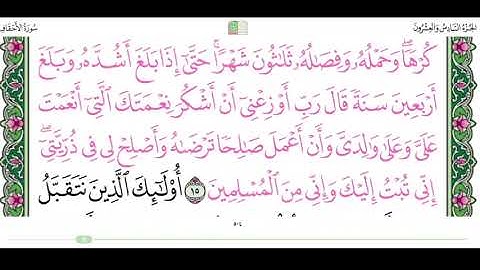 الجزء السادس والعشرون
سورة الأحقاف
كُرْهًا ۖ وَحَمْلُهُۥ وَفِصَٰلُهُۥ ثَلَٰثُونَ شَهْرًا ۚ حَتَّىٰٓ إِذَا بَلَغَ أَشُدَّهُۥ وَبَلَغَ
أَرْبَعِينَ سَنَةً قَالَ رَبِّ أَوْزِعْنِىٓ أَنْ أَشْكُرَ نِعْمَتَكَ ٱلَّتِىٓ أَنْعَمْتَ
عَلَىَّ وَعَلَىٰ وَٰلِدَىَّ وَأَنْ أَعْمَلَ صَٰلِحًا تَرْضَىٰهُ وَأَصْلِحْ لِى فِى ذُرِّيَّتِىٓ ۖ
إِنِّى تُبْتُ إِلَيْكَ وَإِنِّى مِنَ ٱلْمُسْلِمِينَ ١٥ أُو۟لَٰٓئِكَ ٱلَّذِينَ نَتَقَبَّلُ
٥٠٤